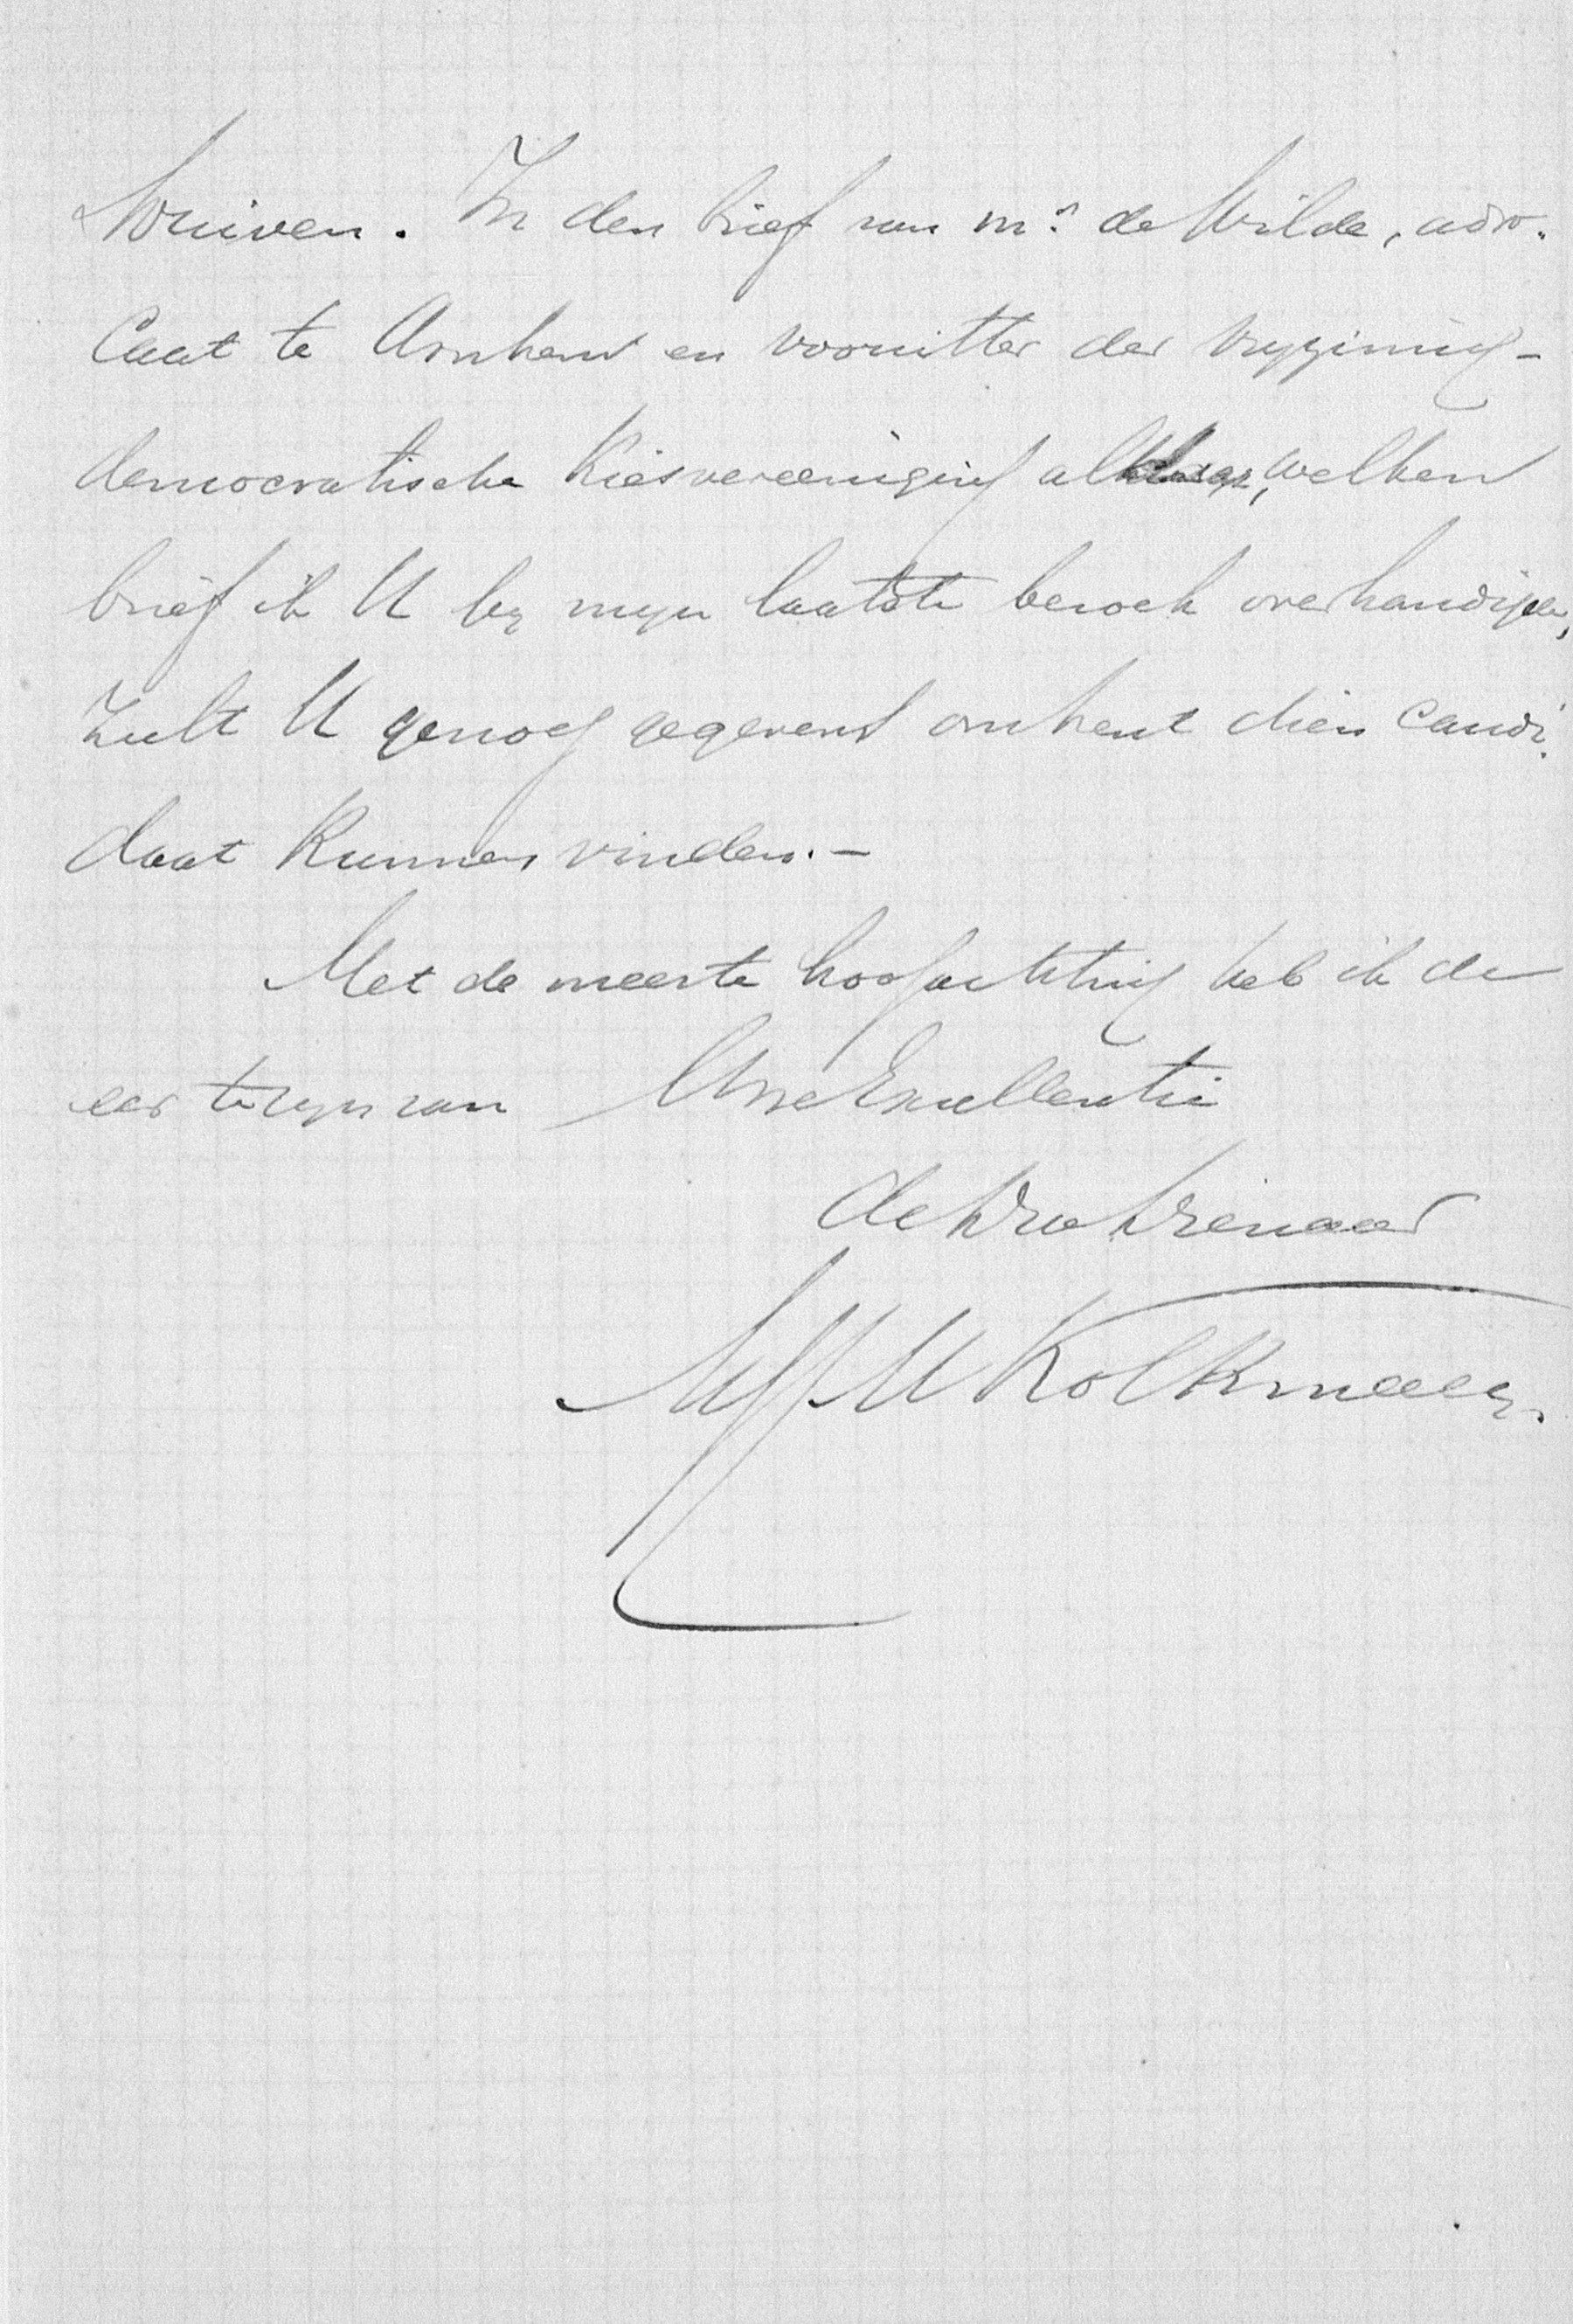 Druiven. In den brief van mr. de Wilde, advo-
caat te Arnhem en voorzitter der vrijzinnig-
democratische Kiesvereeniging aldaar, welken
brief ik U bij mijn laatste bezoek overhandigde,
zult U genoeg gegevens omtrent dien candi-
daat kunnen vinden.-
Met de meeste hoogachting heb ik de
eer te zijn van Uwe Excellentie
de dw dienaar
Kolkman